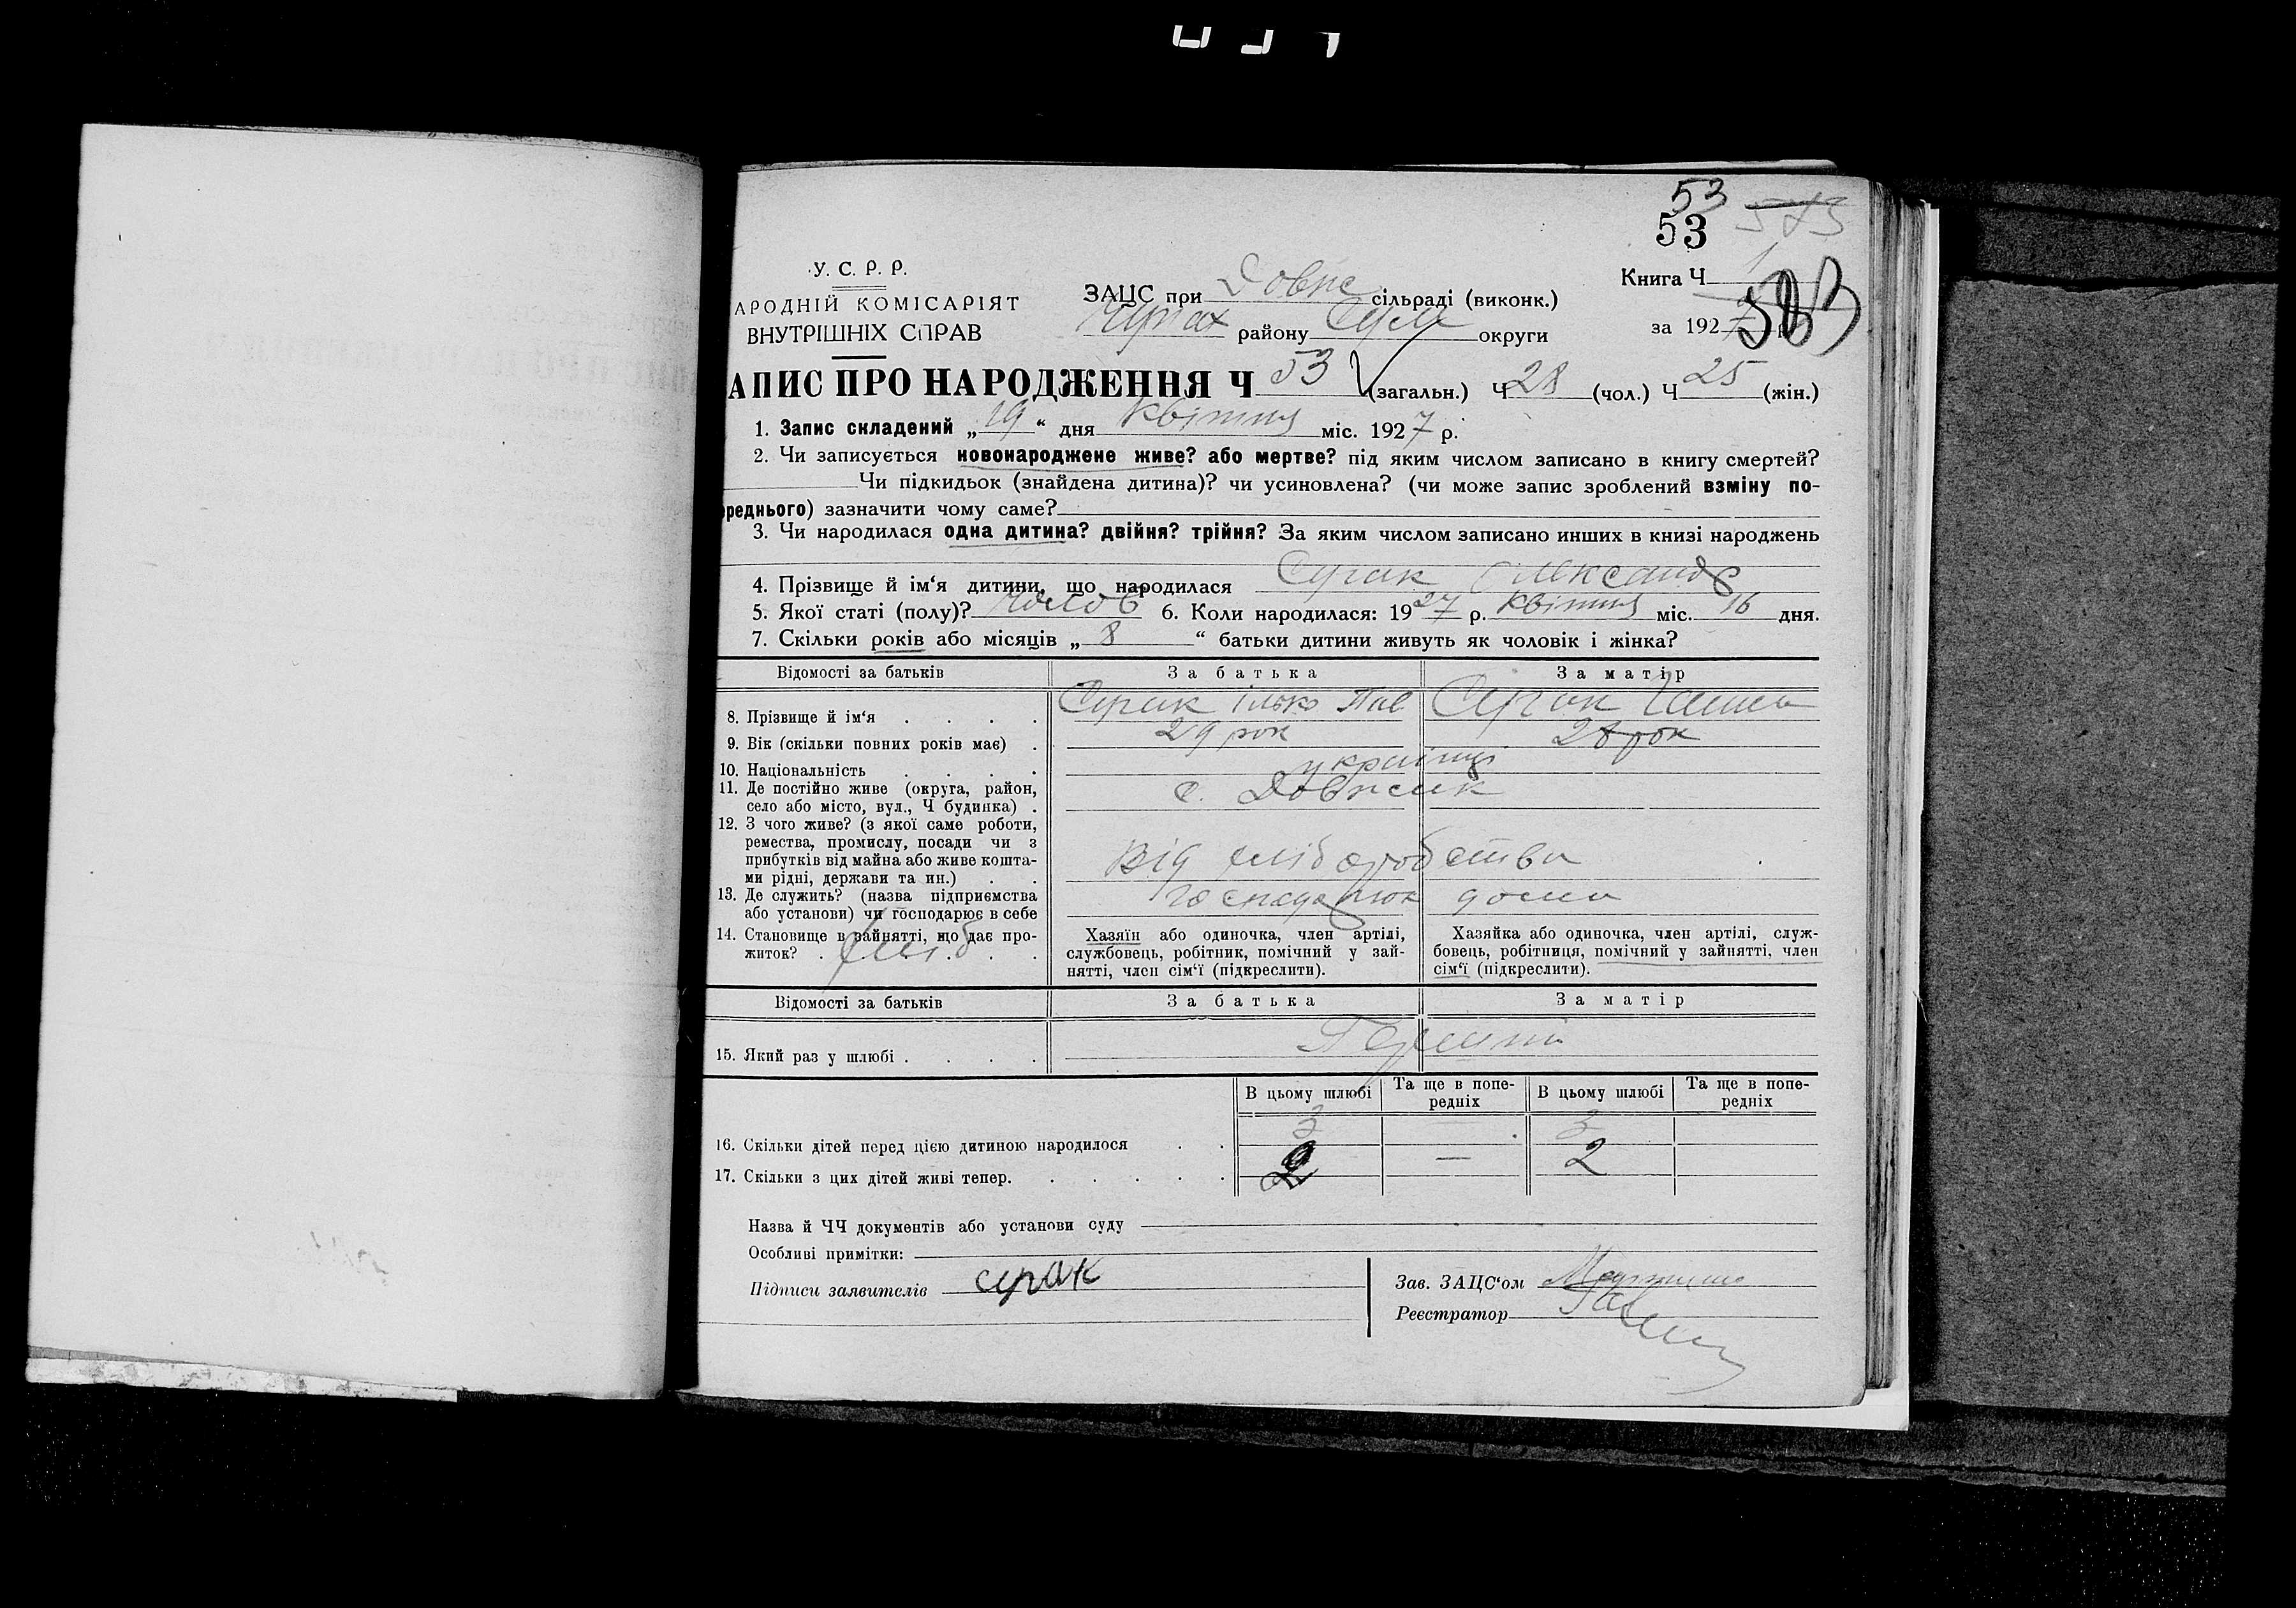 53
53 573
У. С. Р. Р.
Книга Ч 1
АРОДНІЙ КОМІСАРІЯТ
ЗАЦС при Довж сільраді (виконк.)
ВНУТРІШНІХ СПРАВ
району Сум округи
за 1927 р.
АПИС ПРО НАРОДЖЕННЯ Ч 53 (загальн.) Ч 28 (чол.) Ч 25 (жін.)
1. Запис складений „19“ дня квітня міс. 1927 р.
2. Чи записується новонароджене живе? або мертве? під яким числом записано в книгу смертей?
Чи підкидьок (знайдена дитина)? чи усиновлена? (чи може запис зроблений взміну по-
ереднього) зазначити чому саме?
3. Чи народилася одна дитина? двійня? трійня? За яким числом записано инших в книзі народжень
4. Прізвище й ім‘я дитини, що народилася Сугак Олександр
5. Якої статі (полу)? чолов 6. Коли народилася: 1927 р. квітня міс. 16 дня.
7. Скільки років або місяців „8“ батьки дитини живуть як чоловік і жінка?
Відомості за батьків За батька За матір
8. Прізвище й ім‘я Сугак Ілько Пав Сугак
9. Вік (скільки повних років має) 29 рок 28 рок
10. Національність українці
11. Де постійно живе (округа, район,
село або місто, вул., Ч будинка) с. Довжик
12. З чого живе? (з якої саме роботи,
ремества, промислу, посади чи з
прибутків від майна або живе кошта-
ми рідні, держави та ин.) Від хліборобства
13. Де служить? (назва підприємства
або установи) чи господарює в себе господарюк дома
14. Становище в зайнятті, що дає про-
житок? хліб
Хазяїн або одиночка, член артілі,
службовець, робітник, помічний у зай-
нятті, член сім‘ї (підкреслити).
Хазяйка або одиночка, член артілі, служ-
бовець, робітниця, помічний у зайнятті, член
сім‘ї (підкреслити).
Відомості за батьків За батька За матір
15. Який раз у шлюбі Перший
В цьому шлюбі Та ще в попе-
редніх В цьому шлюбі Та ще в попе-
редніх
16. Скільки дітей перед цією дитиною народилося 3 — 3
17. Скільки з цих дітей живі тепер. 2 — 2
Назва й ЧЧ документів або установи суду
Особливі примітки:
Підписи заявителів сугак
Зав. ЗАЦС‘ом
Реєстратор